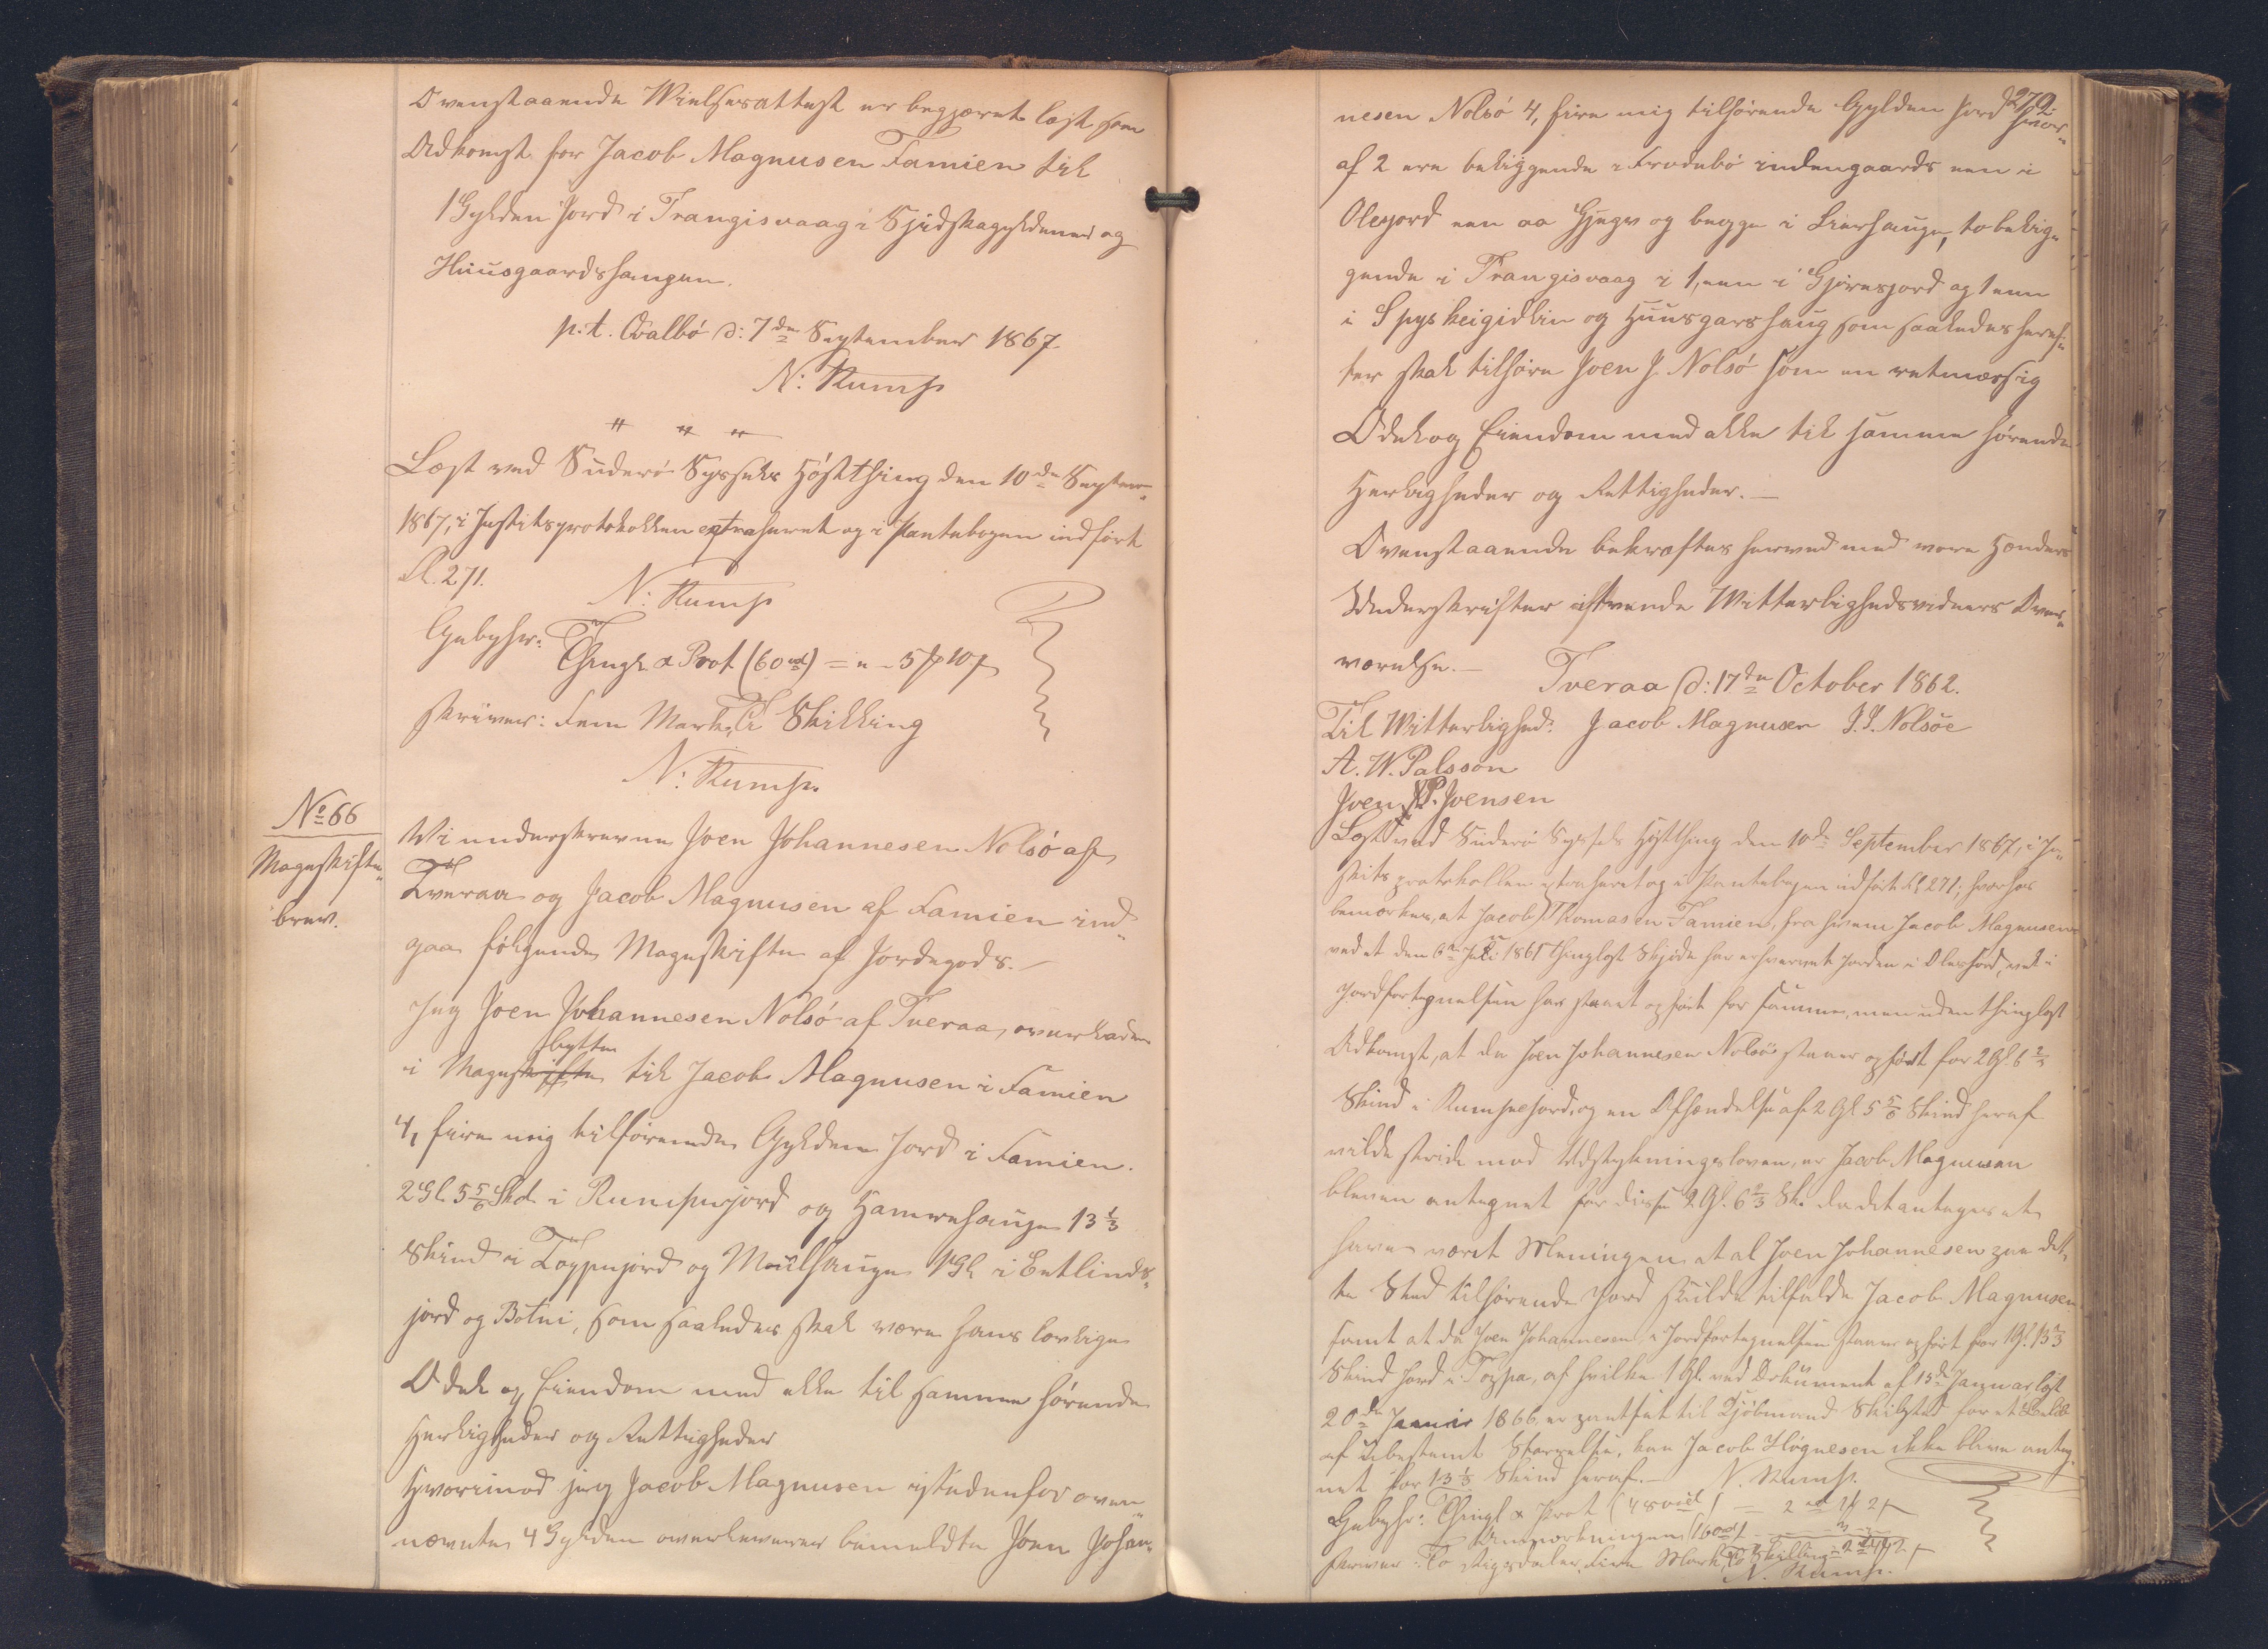 Ovenstaaende Vielsesattest er begjæret læst som
Adkomst for Jacob Magnusen Famien til
1 Gylden Jord i Trangisvaag i Sjidskagyldenen og
Huusgaardshaugen.
p.t. Qvalbö d: 7de September 1867.
N: Rump
" " "
Læst ved Suderö Syssels Höstthing den 10de Septem-
1867, i Justitsprotokollen extraheret og i Pantebogen indfört
Fl. 271.
N: Rump
Gebyhr:
Thingl & Prot (60 ) = " - 5 ƒ 10 ƒ
skriver: Fem Mark, Ti Skilling
N: Rump.
No 66
Mageskifte-
brev.
Vi underskrevne Joen Johannesen Nolsö af
Tveraa og Jacob Magnusen af Famien ind-
gaa fölgende Mageskifte af Jordegods. –
Jeg Joen Johannesen Nolsö af Tveraa, overlader
bytte
i Mageskifte til Jacob Magnusen i Famien
4, fire mig tilhörende Gylden Jord i Famien.
2 Gl. 5 5/6 Skd. i Rumpejord og Hamrehauge 13 1/3
Skind i Toppejord og Muilhauge 1 Gl i Entlinds-
jord og Botni, som saaledes skal være hans lovlige
Odel og Eiendom med alle til samme hörende
Herligheder og Rettigheder
Hvorimod jeg Jacob Magnusen istedenfor oven-
nævnte 4 Gylden overleverer bemeldte Joen Johan-
272.
nesen Nolsö 4, fire mig tilhörende Gylden Jord hvor-
af 2 ere beliggende i Frodebö indengaards een i
Olesjord een aa Gjegv og begge i Lierhauge, to belig-
gende i Trangisvaag i 1, een i Gjörrejord og 1 een
i Spysheigidlin og Huusgarshaug som saaledes heref-
ter skal tilhöre Joen J. Nolsö som en retmæssig
Odel og Eiendom med alle til samme hörende
Herligheder og Rettigheder. –
Ovenstaaende bekræftes herved med vore Hænders
Underskrifter i tvende Vitterlighedsvidners Over-
værelse. –
Tveraa d: 17de October 1862.
Til Vitterlighed: Jacob Magnusen J. J. Nolsöe
A. W. Palsson
Joen P. Joensen
Læst ved Suderö Syssels Höstthing den 10de September 1867, i Ju-
stitsprotokollen extraheret og i Pantebogen indfört Fl 271; hvorhos
bemærkes, at Jacob Thomasen Famien, fra hvem Jacob Magnusen
ved et den 6te Juli 1861 thinglæst Skjöde har erhvervet Jorden i Olesjord, vel i
Jordfortegnelsen har staaet opfört for samme, men uden thinglæst
Adkomst, at da Joen Johannesen Nolsöe staaer opfört for 2 Gl. 6 2/3
Skind i Rumpejord, og en Afhændelse af 2 Gl 5 5/6 Skind heraf
vilde stride mod Udstykningsloven, er Jacob Magnusen
bleven antegnet for disse 2 Gl. 6 2/3 Sk. da det antages at
have været Meningen at al Joen Johannesen paa det-
te Sted tilhörende Jord skulde tilfalde Jacob Magnusen
samt at da Joen Johannesen i Jordfortegnelsen staaer opfört for 1 Gl. 13 1/3
Skind Jord i Toppa, af hvilke 1 Gl. ved Dokument af 15de Januar læst
20de Januar 1866, er pantsat til Kjöbmand for et
af ubestemt Störrelse, kan Jacob Magnesen ikke blive anteg-
net for 13 1/3 Skind heraf. – N. Rump.
Gebyhr: Thingl & Prot (48 ) = 2 1 ƒ 2 ƒ
Anmærkningen (60 ) - 3 -
skriver: To Rigsdaler, Fire Mark, To Skilling = 2 4 ƒ 2 ƒ
N. Rump.